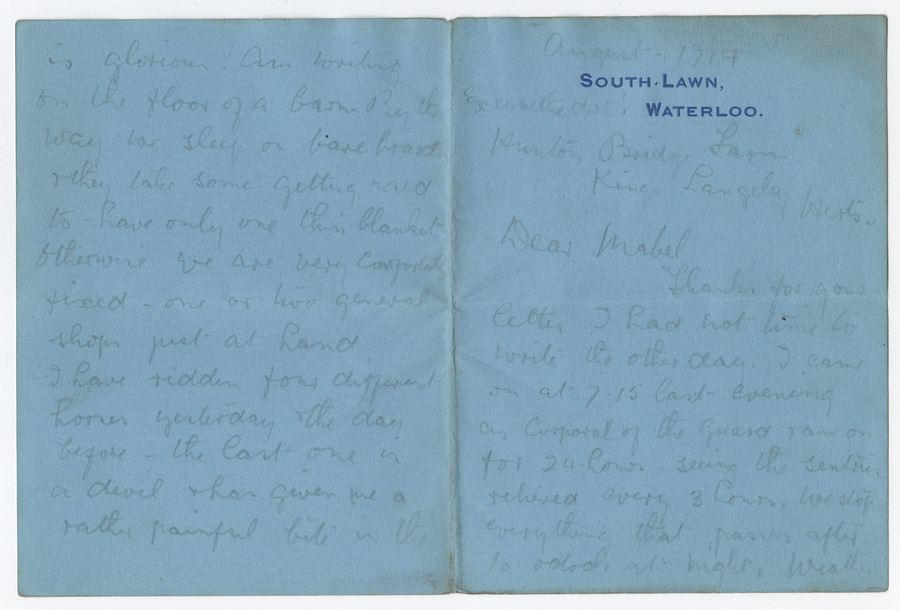 August - 1914
SOUTH LAWN,
WATERLOO.
Excuse the dirt!
Hunton Bridge Farm
Kings Langley Herts.
Dear Mabel
Thanks for your
letter I had not time to
write the other day. I came
on at 7.15 last evening
as Corporal of the Guard & am on
for 24 hours - seeing the sentries
relieved every 3 hours. We stop
everything that passes after
10 oclock at night. Weather
is glorious! Am writing
on the floor of a barn. By the
way we sleep on bare boards
& they take some getting used
to - have only one thin blanket
Otherwise we are very comfortably
fixed - one or two general
shops just at hand
I have ridden four different
horses yesterday & the day
before - the last one is
a devil & has given me a
rather painful bite in the